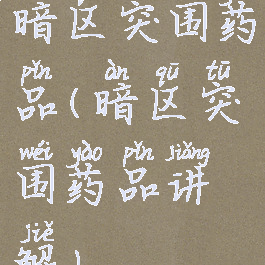 暗区突围药
pǐn àn qū tū
品(暗区突
wéi yào pǐn jiǎng
围药品讲
jiě
解)